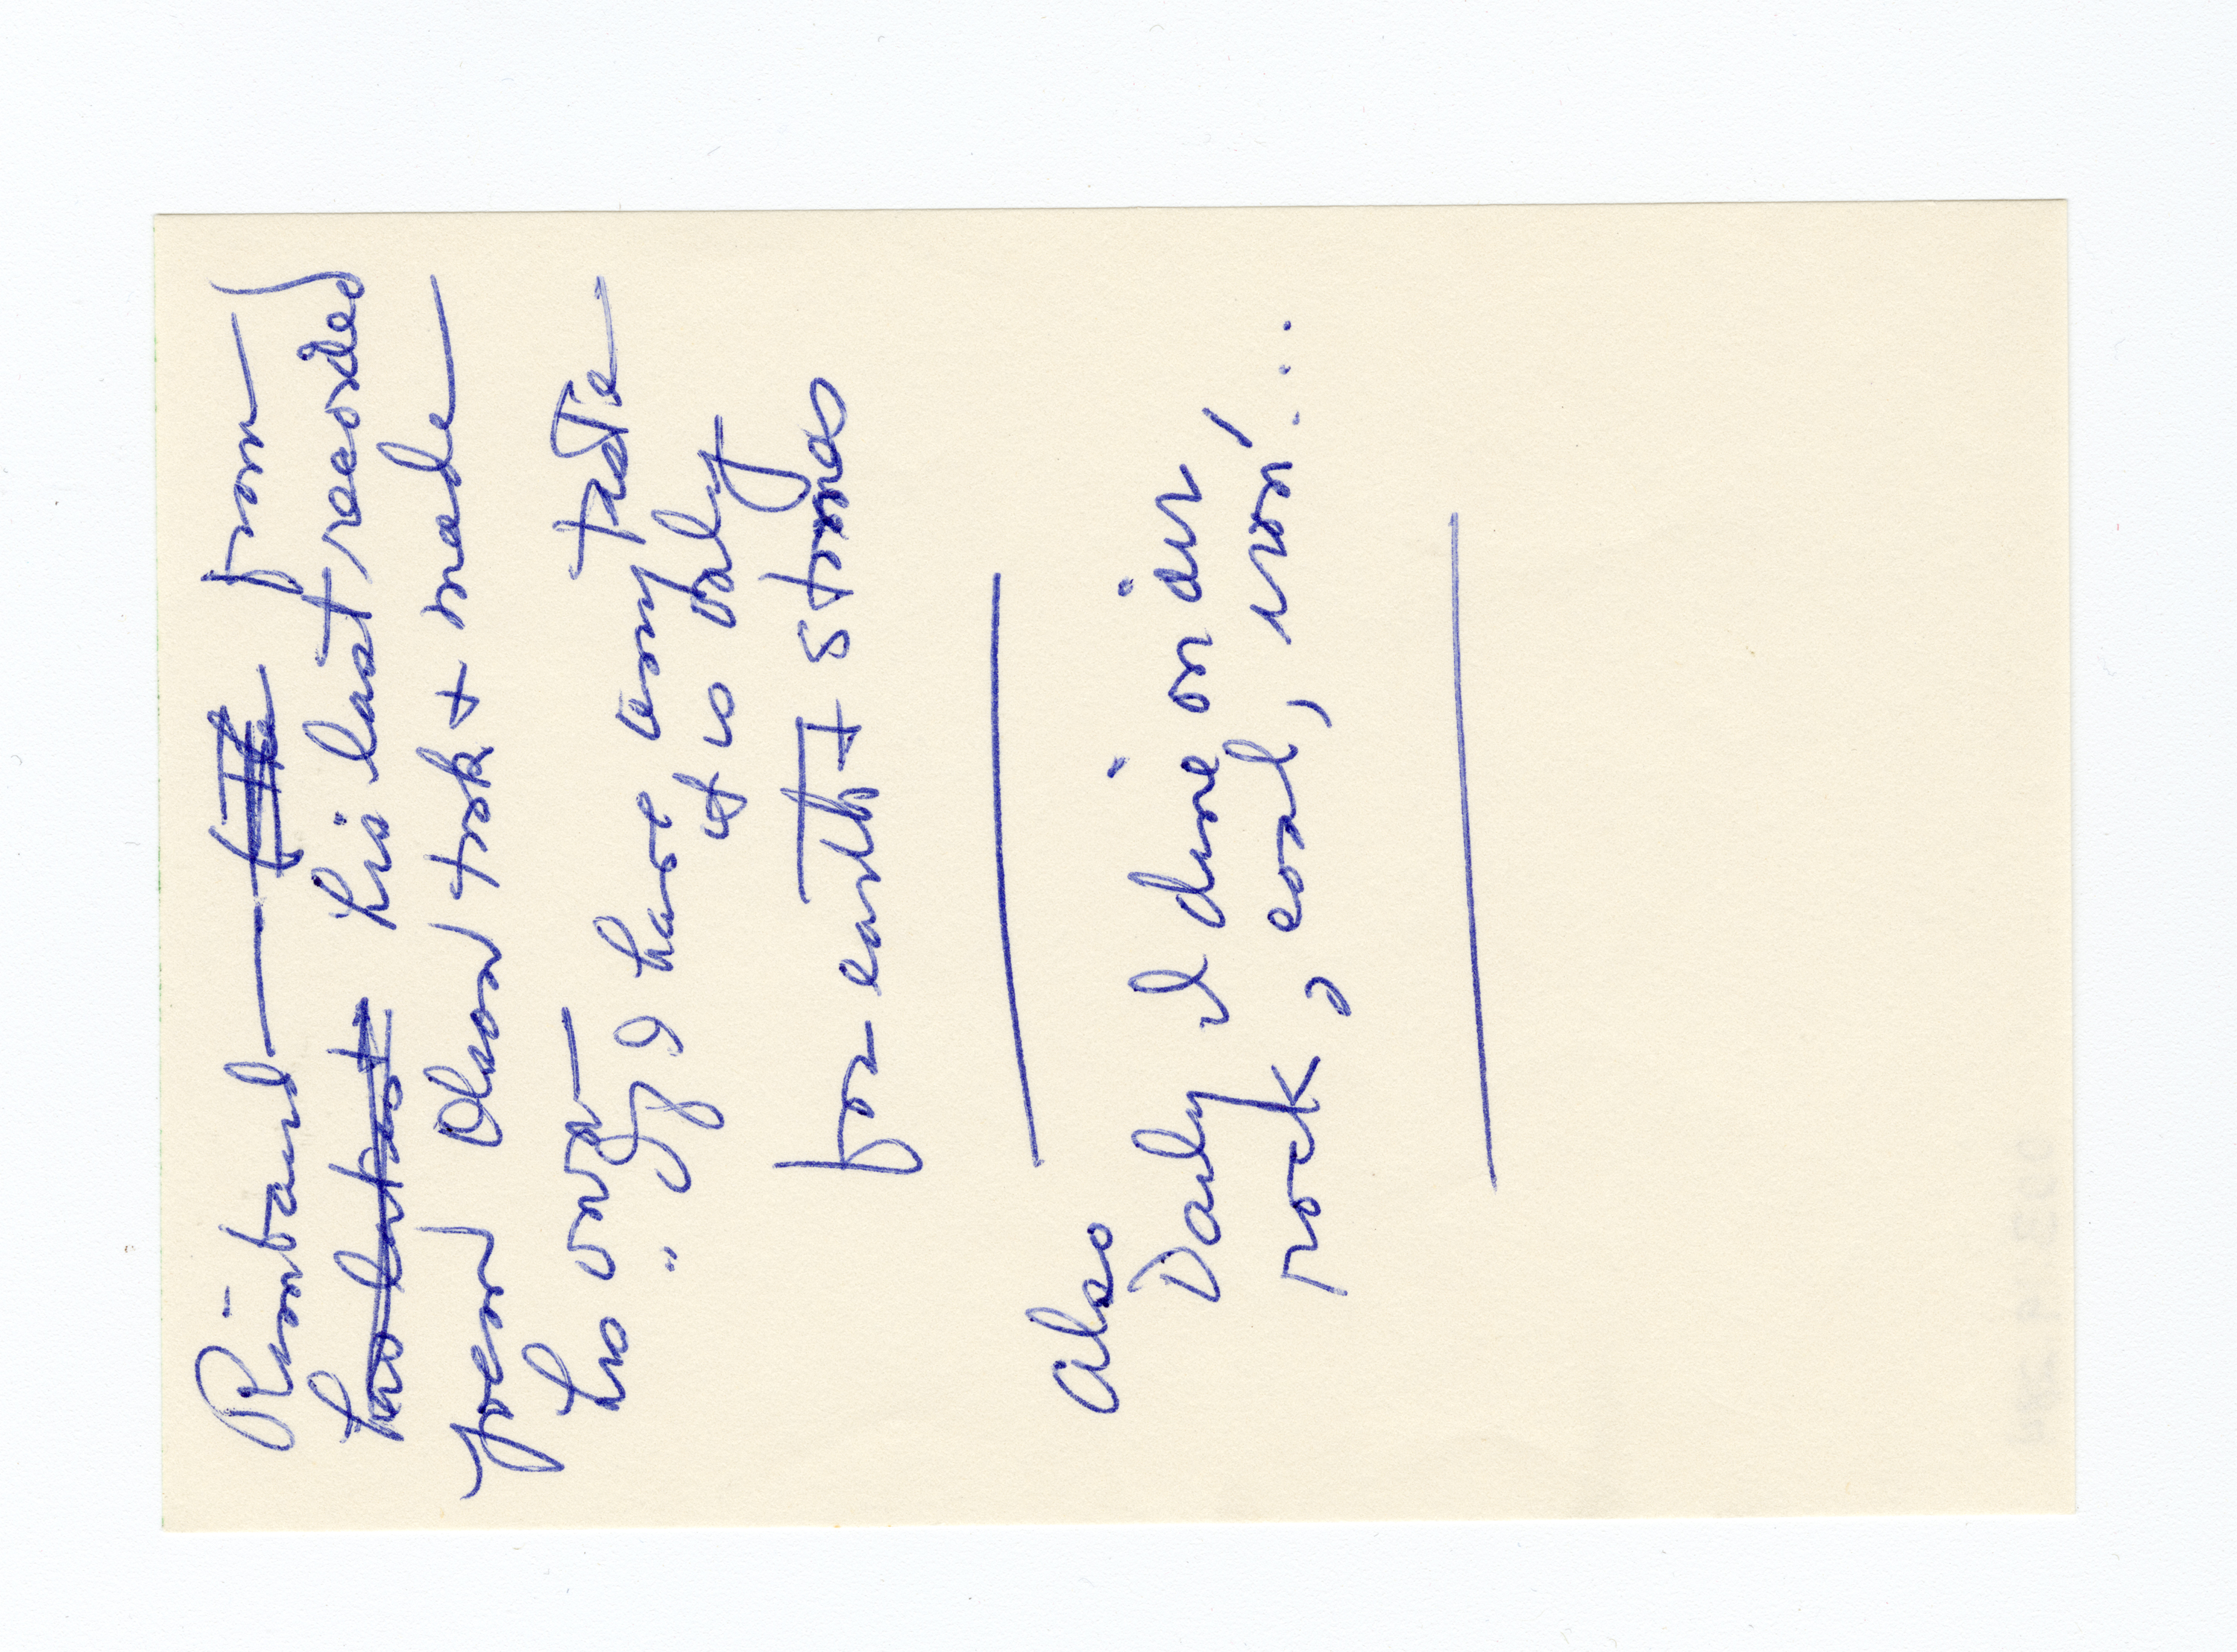 Rimbaud — ~~(the~~ from
~~his last last~~ his last recorded
poem Olson took & made
his own
"If I have any taste
it is only
for earth & stones
also
Daily I dine on air
rock, coal, iron' ...